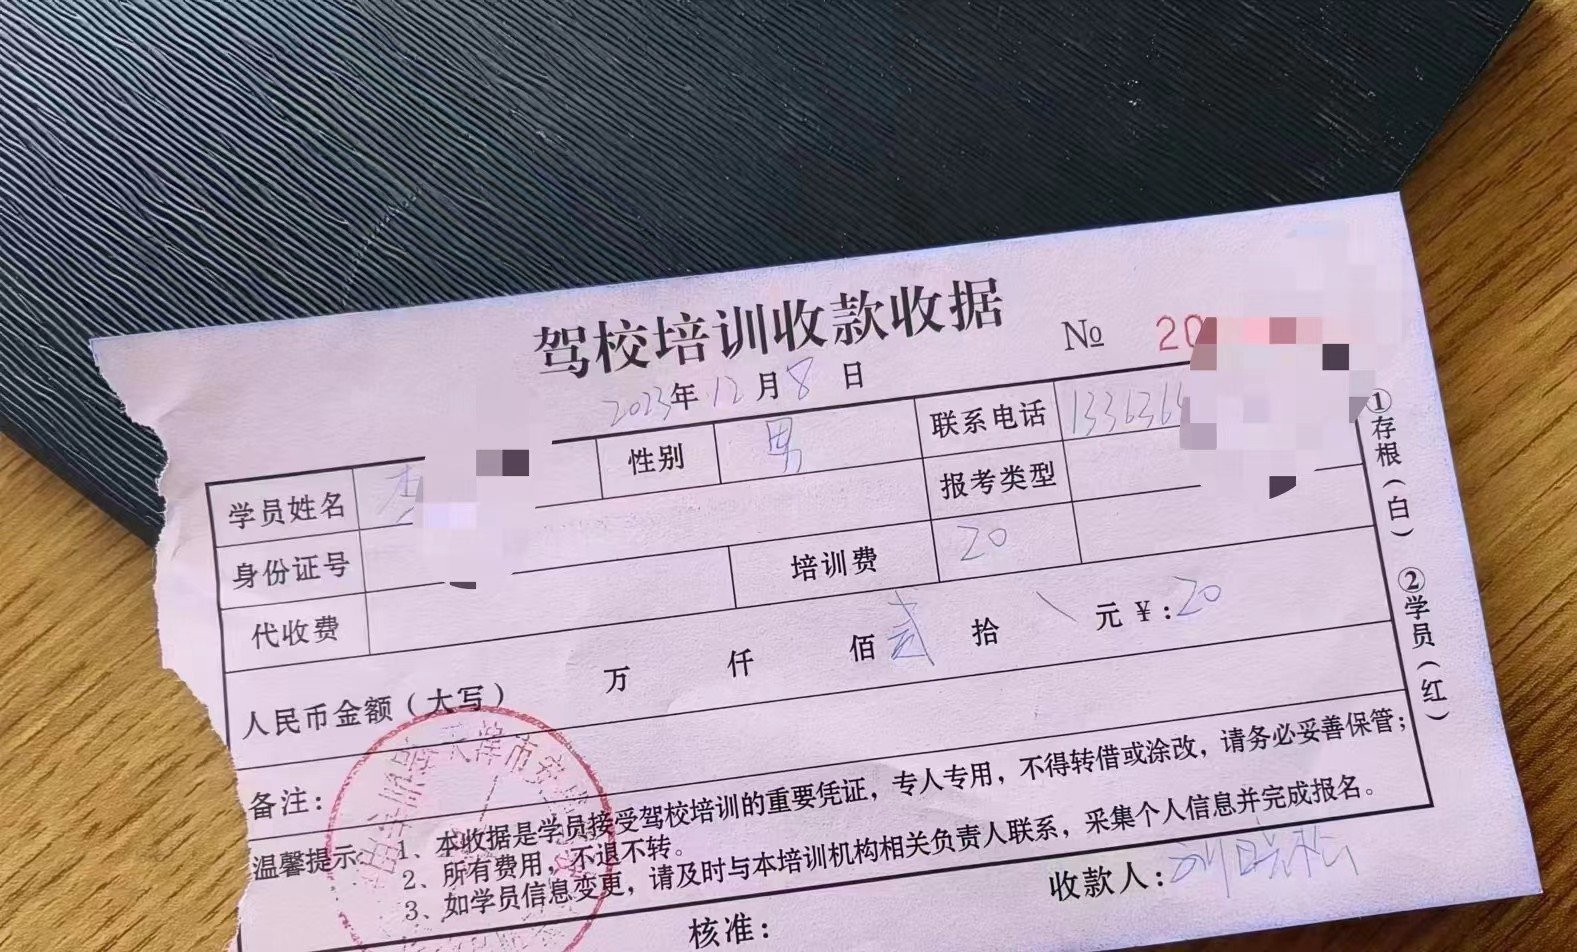 驾校培训收款收据
№ 20
2023年12月8日
学员姓名 李 性别 男 联系电话 133636
身份证号 报考类型
代收费 培训费 20
人民币金额（大写） 万 仟 佰 贰 拾 元 ¥:20
备注:
温馨提示: 1、本收据是学员接受驾校培训的重要凭证，专人专用，不得转借或涂改，请务必妥善保管；
2、所有费用，不退不转。
3、如学员信息变更，请及时与本培训机构相关负责人联系，采集个人信息并完成报名。
核准: 收款人: 刘晓松
①存根（白） ②学员（红）
天津市